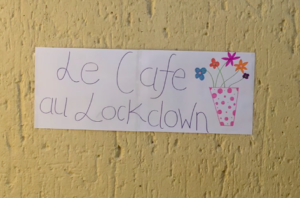 Le Cafe
au Lockdown